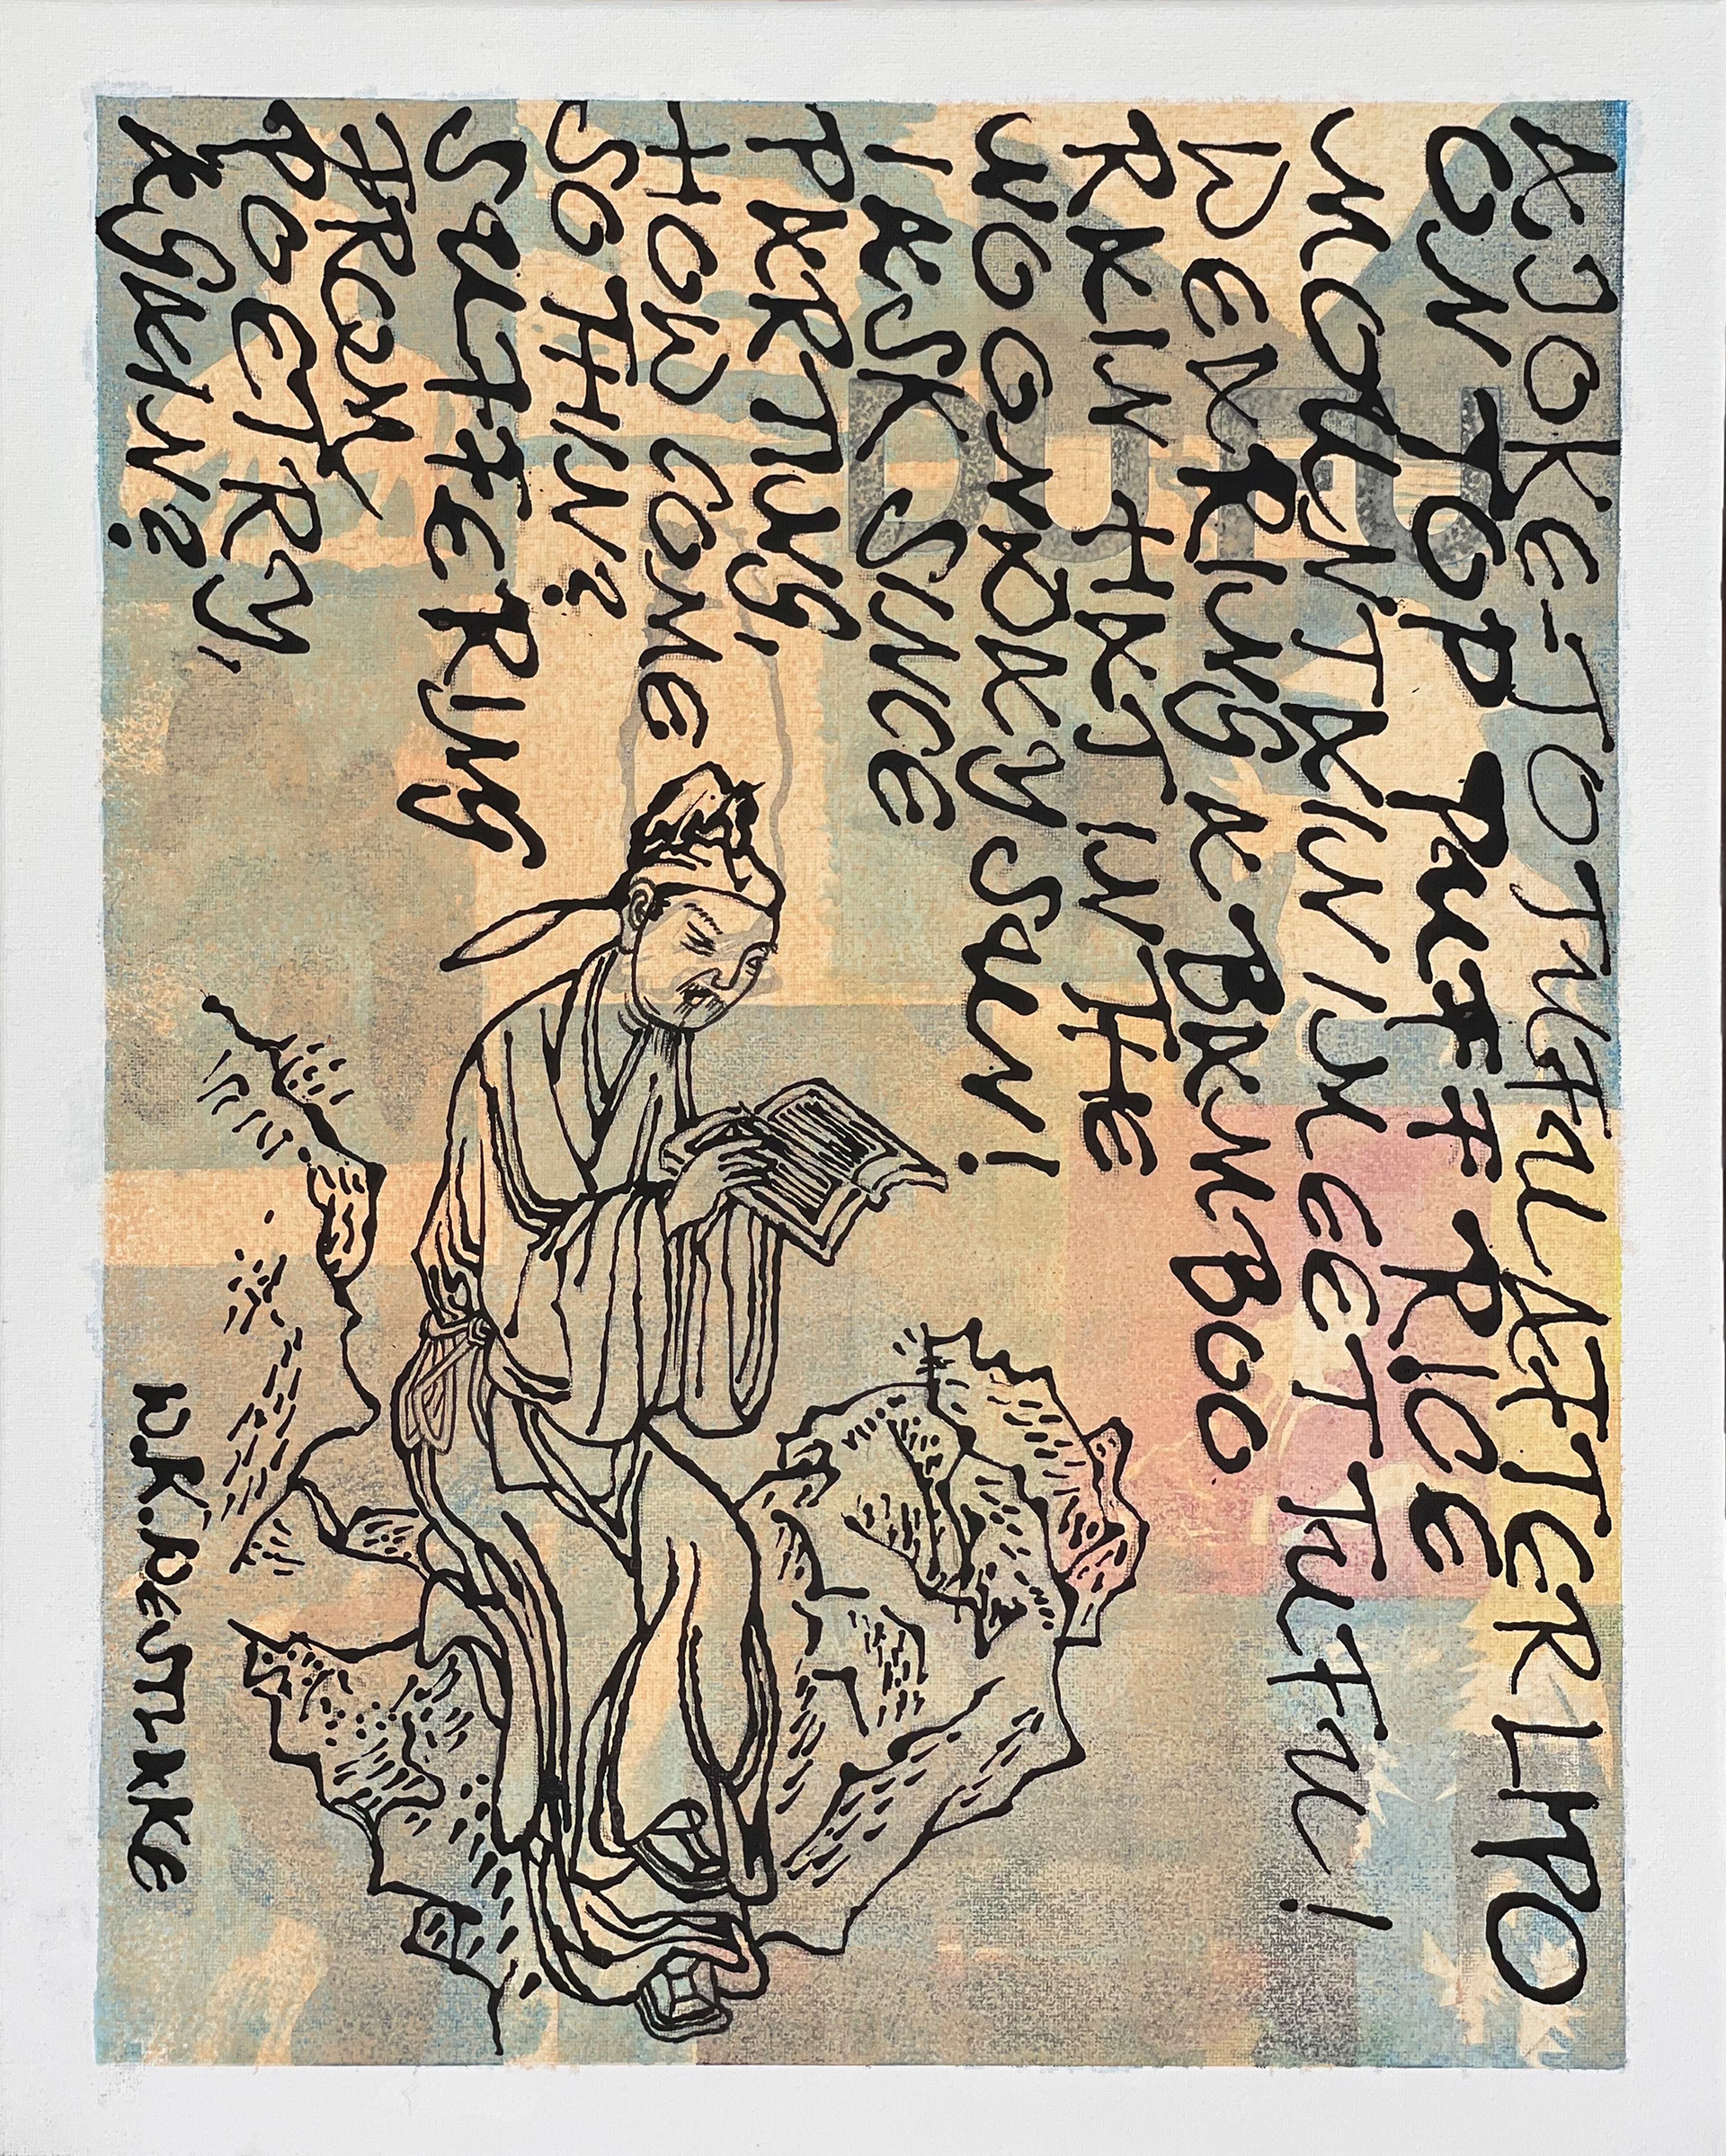 A JOKE-TO TU FU AFTER LI PO
ON TOP PUFF RICE
MOUNTAIN I MEET TU FU!
WEARING A BAMBOO
RAIN HAT IN THE
NOONDAY SUN!
I ASK SINCE
PARTING,
HOW COME
SO THIN?
SUFFERING
FROM
POETRY,
AGAIN?
DU FU
W.K.